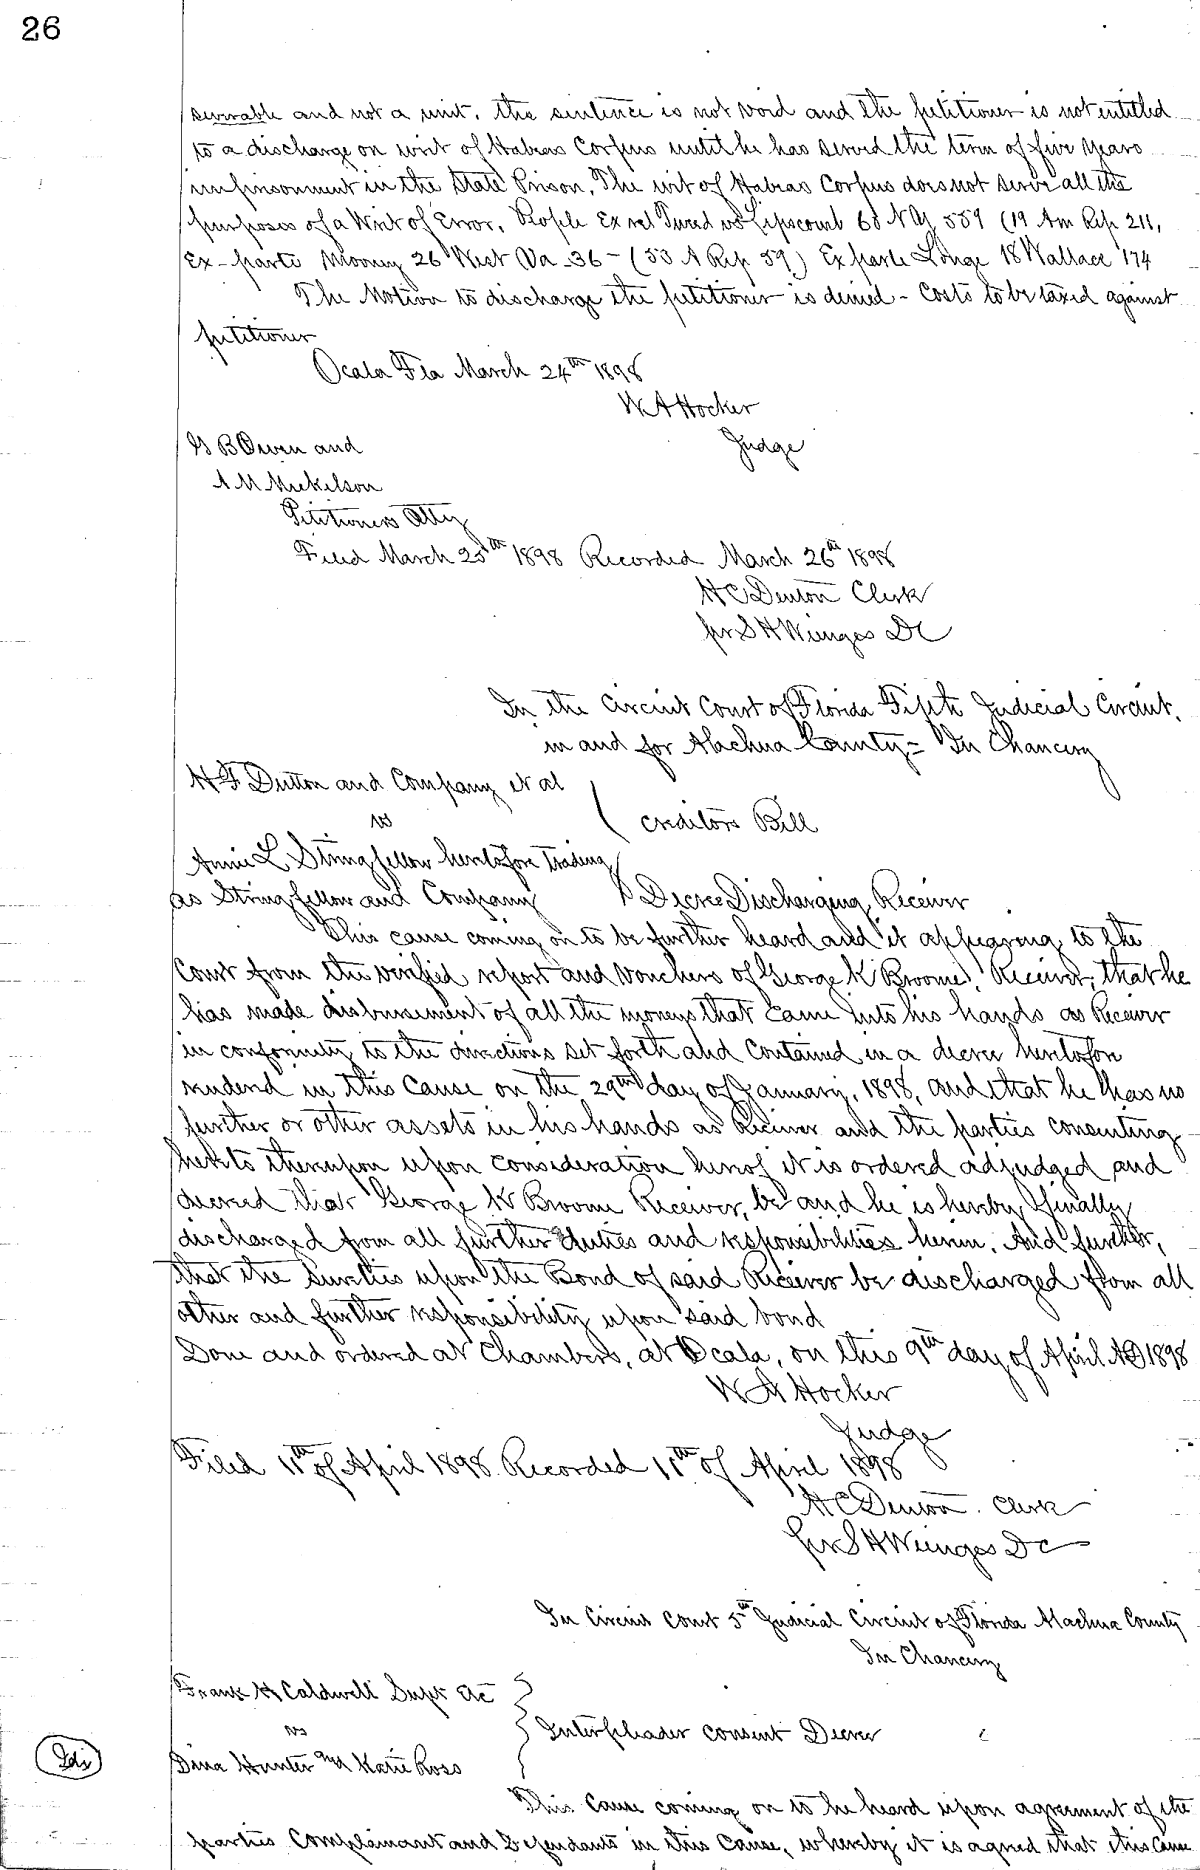 26
severable and not a unit. the sentence is not void and the petitioner is not entitled
to a discharge on writ of Habeas Corpus until he has served the term of five years
imprisonment in the State Prison. The writ of Habeas Corpus does not serve all the
purposes of a Writ of Error. People Ex rel Tweed vs Lipscomb 60 N Y 559 (19 Am Rep 211,
Ex-parte Mooney 26 West Va - 36 - (53 A Rep 59) Ex parte Lange 18 Wallace 174
The Motion to discharge the petitioner is denied - Costs to be taxed against
petitioner
Ocala Fla March 24th 1898
W A Hocker
Judge
B Owen and
A M Mickelson
Petitioners Atty
Filed March 25th 1898 Recorded March 26th 1898
H C Denton Clerk
per S H Wienges DC
In the Circuit Court of Florida Fifth Judicial Circuit.
in and for Alachua County = In Chancery
H F Dutton and Company et al
vs
creditors Bill
Annie L Stringfellow heretofore trading
as Stringfellow and Company
Decree Discharging Receiver
This cause coming on to be further heard and it appearing to the
Court from the verified report and vouchers of George K Broome, Receiver, that he
has made disbursement of all the moneys that came into his hands as Receiver
in conformity to the directions set forth and contained in a decree heretofore
rendered in this cause on the 29th day of January, 1898, and that he has no
further or other assets in his hands as Receiver and the parties consenting
hereto thereupon upon consideration hereof it is ordered adjudged and
decreed that George K Broome Receiver, be and he is hereby finally
discharged from all further duties and responsibilities herein. And further,
that the sureties upon the Bond of said Receiver be discharged from all
other and further responsibility upon said bond
Done and ordered at Chambers, at Ocala, on this 9th day of April AD 1898
W A Hocker
Judge
Filed 11th of April 1898 Recorded 11th of April 1898
H C Denton. Clerk
per S H Wienges DC
In Circuit Court 5th Judicial Circuit of Florida Alachua County
In Chancery
Frank H Caldwell Supt &c
vs
Interpleader consent Decree
Dina Hunter and Katie Ross
This cause coming on to be heard upon agreement of the
parties Complainant and Defendants in this cause, whereby it is agreed that this cause